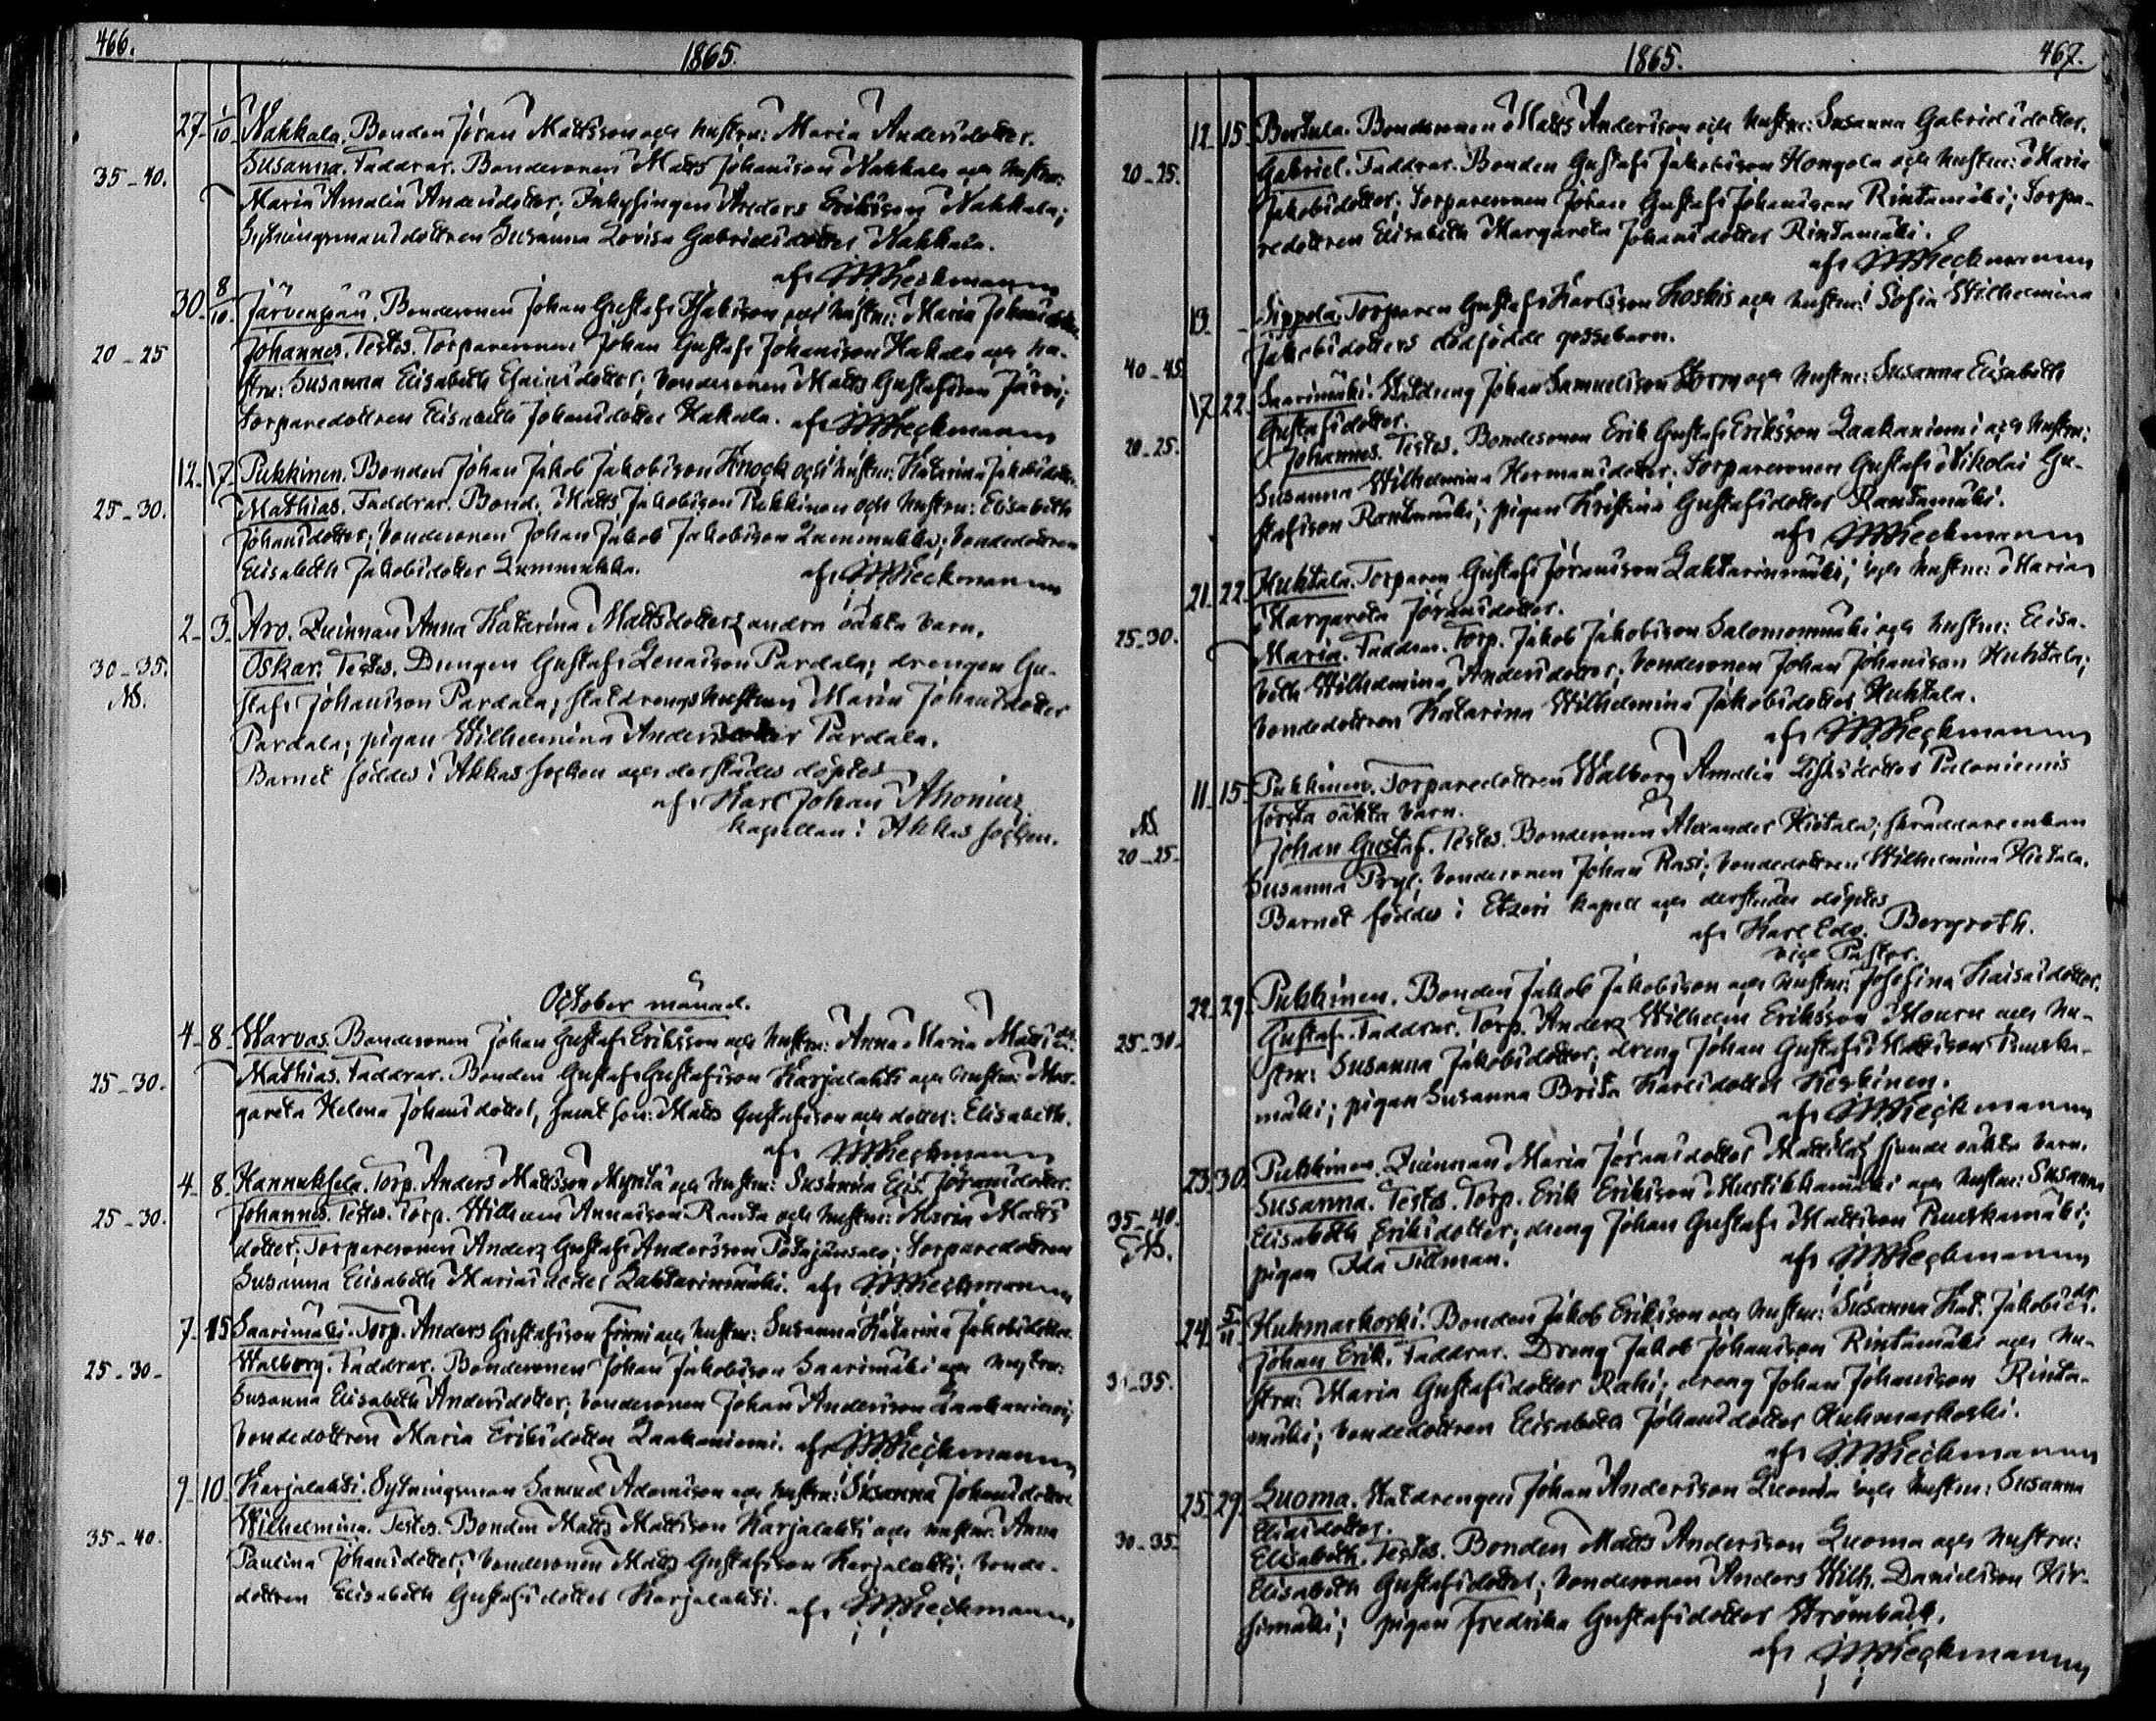 466.
1865.
27 1/10 Nahkala. Bonden Jöran Mattsson och hustru: Maria Andersdotter.
35-40. Susanna. Faddrar. Bondesonen Matts Johansson Nahkala och hustru:
Maria Amalia Andersdotter; Inhysingen Anders Eriksson Nahkala;
Sytningsmansdottren Susanna Lovisa Gabrielsdotter Nahkala.
af Heckmann
30 8/10 Järvenpää. Bondesonen Johan Gustaf och hustru: Maria Johansdotter
20-25 Johannes. Testes. Torparesonen Johan Gustaf Johansson Hakala och hu-
stru: Susanna Elisabeth Esaiasdotter; bondesonen Matts Gustafsson Järvi;
torparedottren Elisabeth Johansdotter Hakala. af Heckmann
12 17 Pukkinen. Bonden Johan Jakob Jakobsson Knock och hustru: Katarina Jakobsdotter.
25-30. Mathias. Faddrar. Bond. Matts Jakobsson Pukkinen och hustru: Elisabeth
Johansdotter; bondesonen Johan Jakob Jakobsson Lummukka; bondedottren
Elisabeth Jakobsdotter Lummukka. af Heckmann
2 3 Aro. Quinnan Anna Katarina Mattsdotters andra oäkta barn.
30-35. Oskar. Testes. Drengen Gustaf Pardala; drengen Gu-
NB. staf Johansson Pardala; statdrengs hustrun Maria Johansdotter
Pardala; pigan Wilhelmina Andersdotter Pardala.
Barnet föddes i Akkas socken och derstädes döptes
af Karl Johan Ahonius
kapellan i Akkas socken.
October månad.
4 8 Warvas. Bondesonen Johan Gustaf Eriksson och hustru: Anna Maria Mattsdr.
25-30. Mathias. Faddrar. Bonden Gustaf Gustafsson Karjalahti och hustru: Mar-
gareta Helena Johansdotter, samt son: Matts Gustafsson och dotter: Elisabeth.
af Heckmann
4 8 Hannuksela. Torp. Anders Mattsson och hustru: Susanna Elis. Jöransdotter.
25-30. Johannes. Testes. Torp. Wilhelm Annasson Ranta och hustru: Maria Matts
dotter; Torparesonen Anders Gustaf Andersson; torparedottren
Susanna Elisabeth Mariasdotter Lahtarinmäki. af Heckmann
7 15 Saarimäki. Torp. Anders Gustafsson och hustru: Susanna Katarina Jakobsdotter.
25-30 Walborg. Faddrar. Bondesonen Johan Jakobsson Saarimäki och hustru:
Susanna Elisabeth Andersdotter; bondesonen Johan Andersson Laakaniemi;
bondedottren Maria Eriksdotter Laakaniemi. af Heckmann
9 10 Karjalahti. Sytningsman Samuel Adamsson och hustru: Susanna Johansdotter
35-40. Wilhelmina. Testes. Bonden Matts Mattsson Karjalahti och hustru: Anna
Paulina Johansdotter; bondesonen Matts Gustafsson Karjalahti; bonde-
dottren Elisabeth Gustafsdotter Karjalahti. af Heckmann
1865.
467.
12 15 Bertula. Bondesonen Matts Andersson och hustru: Susanna Gabrielsdotter.
20-25. Gabriel. Faddrar. Bonden Gustaf Jakobsson Hongola och hustru: Maria
Jakobsdotter; torparesonen Johan Gustaf Johansson Rintamäki; torpa-
redottren Elisabeth Margareta Johansdotter Rintamäki.
af Heckmann
13 - Sippola. Torparen Gustaf Karlsson Koskis och hustru: Sofia Wilhelmina
40-45. Jakobsdotters dödfödde gossebarn.
17 22 Saarimäki. Statdreng Johan Samuelsson Storm och hustru: Susanna Elisabeth
Gustafsdotter.
20-25. Johannes. Testes. Bondesonen Erik Gustaf Eriksson Laakaniemi och hustru:
Susanna Wilhelmina Hermansdotter; torparesonen Gustaf Nikolai Gu-
stafsson Rantamäki; pigan Kristina Gustafsdotter Rantamäki.
af Heckmann
21 22 Huhtala. Torparen Gustaf Jöransson Lahtarinmäki, och hustru: Maria
Margareta Jöransdotter.
25-30. Maria. Faddrar. Torp. Jakob Jakobsson Salomonmäki och hustru: Elisa-
beth Wilhelmina Andersdotter; bondesonen Johan Johansson Huhtala;
bondedottren Katarina Wilhelmina Jakobsdotter Huhtala.
af Heckmann
11 15 Pukkinen. Torparedottren Walborg Amalia Paloniemis
första oäkta barn.
NB. 20-25 Johan Gustaf. Testes. Bondesonen Alexander Hietala; skräddareenkan
Susanna Pryl; bondesonen Johan Rasi; bondedottren Wilhelmina Hietala.
Barnet föddes i Etzeri kapell och derstädes döptes
af Karl Edv. Bergroth.
vice Pastor.
22 29 Pukkinen. Bonden Jakob Jakobsson och hustru: Josefina Kaisasdotter.
25-30. Gustaf. Faddrar. Torp. Anders Wilhelm Eriksson och hu-
stru: Susanna Jakobsdotter; dreng Johan Gustaf Mattsson Puuska-
mäki; pigan Susanna Brita Karlsdotter Keskinen.
af Heckmann
23 30 Pukkinen. Quinnan Maria Jöransdotter Mattilas sjunde oäkta barn.
35-40. Susanna. Testes. Torp. Erik Eriksson Mustikkamäki och hustru: Susanna
NB. Elisabeth Eriksdotter; dreng Johan Gustaf Mattsson Puuskamäki;
pigan Ida Tillman. af Heckmann
24 5/11 Huhmarkoski. Bonden Jakob Eriksson och hustru: Susanna Kat. Jakobsdr.
30-35. Johan Erik. Faddrar. Dreng Jakob Johansson Rintamäki och hu-
stru: Maria Gustafsdotter Rahi; dreng Johan Johansson Rinta-
mäki; bondedottren Elisabeth Johansdotter Huhmarkoski.
af Heckmann
25 29 Luoma. Statdrengen Johan Andersson Luoma och hustru: Susanna
Eliasdotter.
30-35. Elisabeth. Testes. Bonden Matts Andersson Luoma och hustru:
Elisabeth Gustafsdotter; bondesonen Anders Wilh. Danielsson Hir-
simäki; pigan Fredrika Gustafsdotter Strömbäck.
af Heckmann